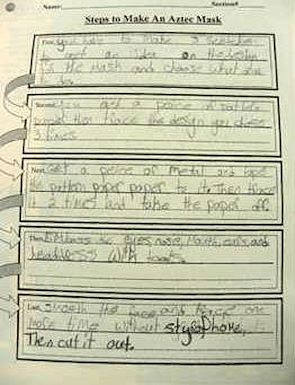 Name: Section#
Steps to Make An Aztec Mask
First, you have to make 3 sketches
to get an idea on the design
of the mask and choose what one
to do.
Second, You get a peice of pattern
paper then trace the design you chose
3 times
Next, Get a peice of metal and tape
the pattern paper paper to it. Then trace
it 2 times and take the paper off.
Then, Emboss the eyes, nose, mouth, ears, and
headdress with tools.
Last, smooth the face and trace one
more time without styrophome,
Then cut it out.